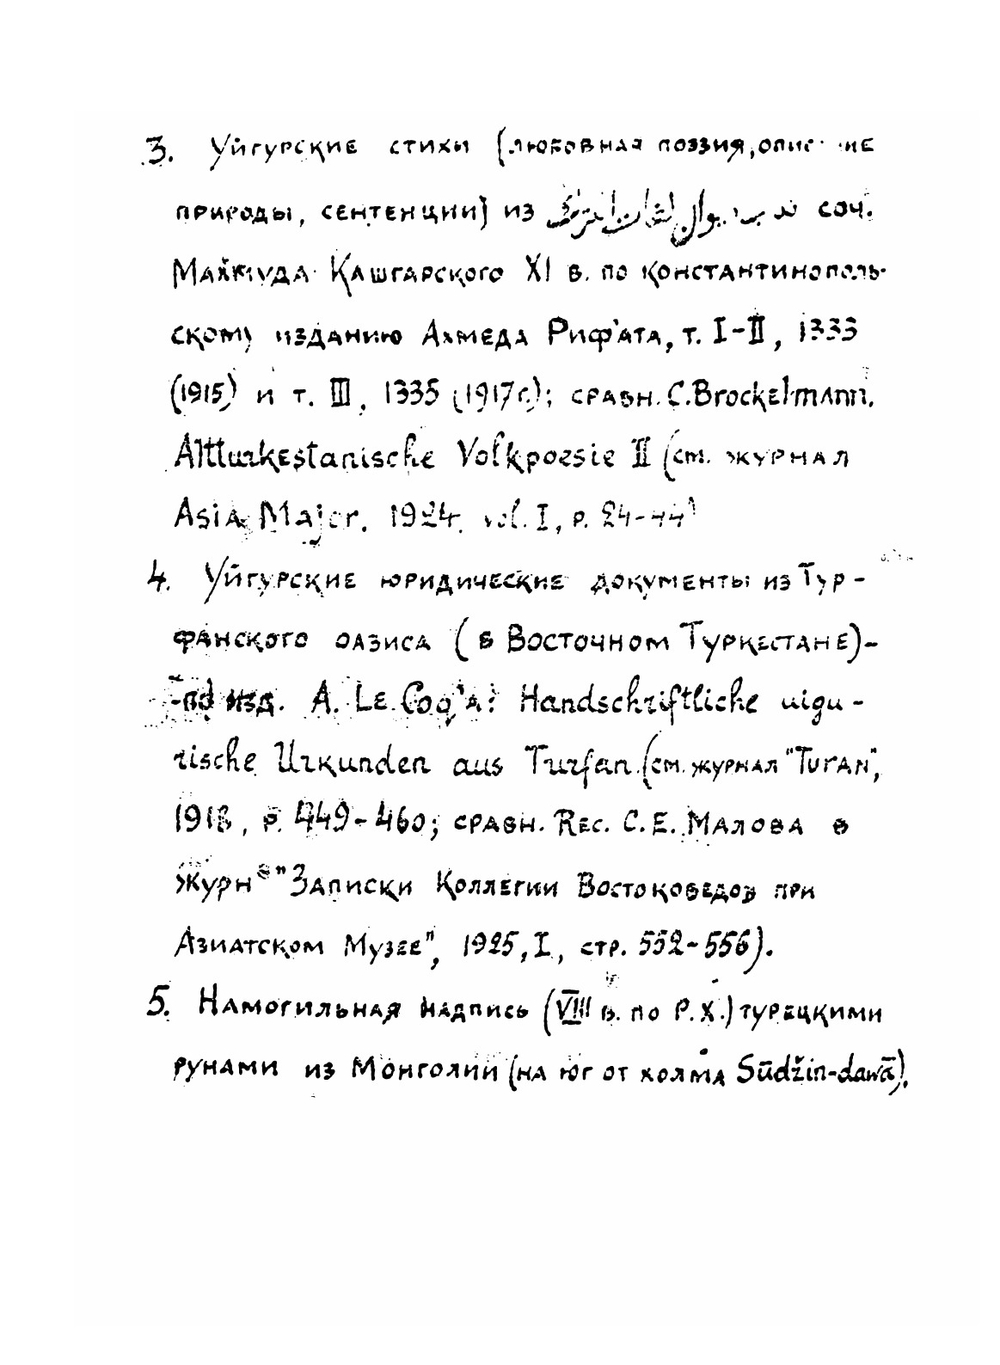 3. Уйгурские стихи (любовная поэзия,
природы, сентенции) из соч.
Махмуда Кашгарского XI в. по константинополь-
скому изданию Ахмеда Риф'ата, т. I-II, 1333
(1915) и т. III, 1335 (1917г.); сравн. C. Brockelmann.
Altturkestanische Volkpoesie II (см. журнал
Asia Major. 1924. vol. I, p. 24-44)
4. Уйгурские юридические документы из Тур-
фанского оазиса (в Восточном Туркестане)-
-по изд. A. Le Coq'a: Handschriftliche uigu-
rische Urkunden aus Turfan (см. журнал "Turan",
1918, p. 449-460; сравн. Rec. С.Е. Малова в
журн "Записки Коллегии Востоковедов при
Азиатском Музее", 1925, I, стр. 552-556).
5. Намогильная надпись (VIII в. по Р.Х.) турецкими
рунами из Монголии (на юг от холма Sūdžin-dawā).